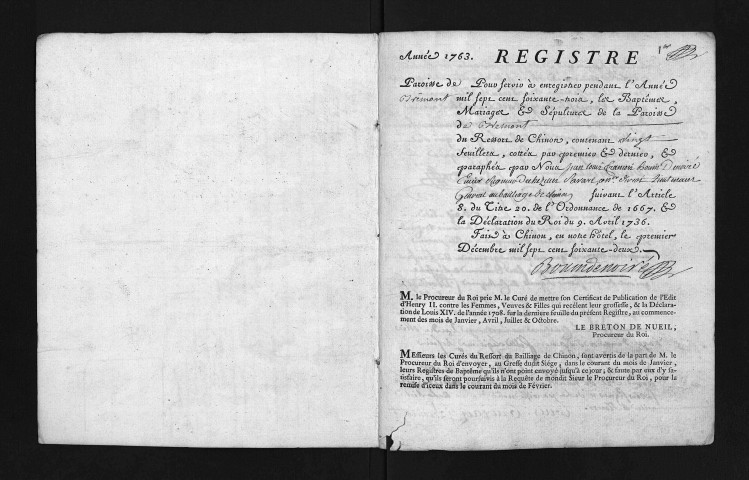 Année 1763. REGISTRE 1er
Paroisse de Pour servir à enregistrer pendant l'Année
Bréhémont mil sept cent soixante-trois, les Baptêmes,
Mariages & Sépultures de la Paroisse
de Bréhémont
du Ressort de Chinon, contenant Vingt
feuillets, cottés par premier & dernier, &
paraphés par Nous Jean Louis Bouin Denoiré
suivant l'Article
8. du Titre 20. de l'Ordonnance de 1667. &
la Déclaration du Roi du 9. Avril 1736.
Fait à Chinon, en notre hôtel, le premier
Décembre mil sept cent soixante-deux.
Bouindenoiré
M. le Procureur du Roi prie M. le Curé de mettre son Certificat de Publication de l'Edit
d'Henry II. contre les Femmes, Veuves & Filles qui recélent leur grossesse, & la Déclara-
tion de Louis XIV. de l'année 1708. sur la derniere feuille du présent Registre, au commence-
ment des mois de Janvier, Avril, Juillet & Octobre.
LE BRETON DE NUEIL,
Procureur du Roi.
MEssieurs les Curés du Ressort du Bailliage de Chinon, sont avertis de la part de M. le
Procureur du Roi d'envoyer, au Greffe dudit Siége, dans le courant du mois de Janvier,
leurs Registres de Baptême qu'ils n'ont point envoyé jusqu'à ce jour; & faute par eux d'y sa-
tisfaire, qu'ils seront poursuivis à la Requête de mondit Sieur le Procureur du Roi, pour la
remise d'iceux dans le courant du mois de Février.